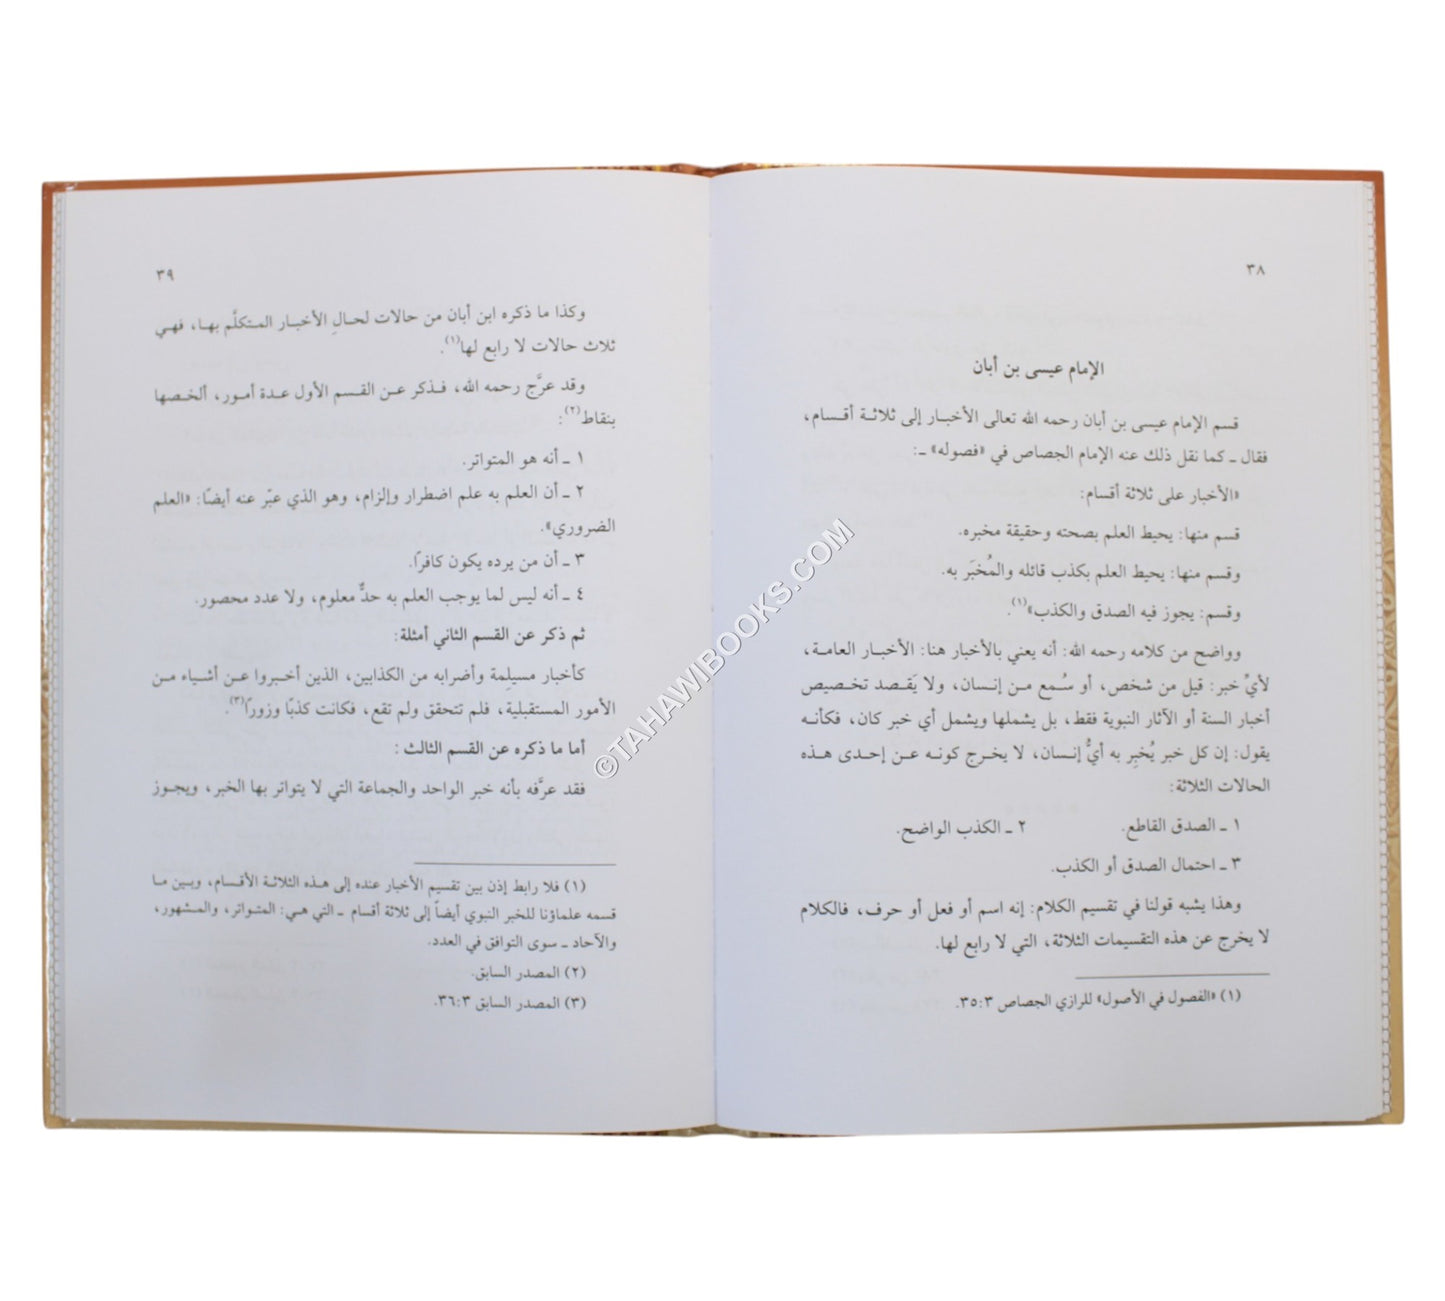 ٣٨
الإمام عيسى بن أبان
قسم الإمام عيسى بن أبان رحمه الله تعالى الأخبار إلى ثلاثة أقسام،
فقال ـ كما نقل ذلك عنه الإمام الجصاص في «فصوله» ـ:
«الأخبار على ثلاثة أقسام:
قسم منها: يحيط العلم بصحته وحقيقة مخبره.
وقسم منها: يحيط العلم بكذب قائله والمُخبَر به.
وقسم: يجوز فيه الصدق والكذب»(١).
وواضح من كلامه رحمه الله: أنه يعني بالأخبار هنا: الأخبار العامة،
لأيِّ خبر: قيل من شخص، أو سُمع من إنسان، ولا يَقصد تخصيص
أخبار السنة أو الآثار النبوية فقط، بل يشملها ويشمل أي خبر كان، فكأنه
يقول: إن كل خبر يُخبِر به أيُّ إنسان، لا يخرج كونه عن إحدى هذه
الحالات الثلاثة:
١ ـ الصدق القاطع. ٢ ـ الكذب الواضح.
٣ ـ احتمال الصدق أو الكذب.
وهذا يشبه قولنا في تقسيم الكلام: إنه اسم أو فعل أو حرف، فالكلام
لا يخرج عن هذه التقسيمات الثلاثة، التي لا رابع لها.
(١) «الفصول في الأصول» للرازي الجصاص ٣:‏٣٥.
٣٩
وكذا ما ذكره ابن أبان من حالات لحالِ الأخبار المتكلَّم بها، فهي
ثلاث حالات لا رابع لها(١).
وقد عرَّج رحمه الله، فذكر عن القسم الأول عدة أمور، ألخصها
بنقاط(٢):
١ ـ أنه هو المتواتر.
٢ ـ أن العلم به علم اضطرار وإلزام، وهو الذي عبّر عنه أيضًا: «العلم
الضروري».
٣ ـ أن من يرده يكون كافرًا.
٤ ـ أنه ليس لما يوجب العلم به حدٌّ معلوم، ولا عدد محصور.
ثم ذكر عن القسم الثاني أمثلة:
كأخبار مسيلِمة وأضرابه من الكذابين، الذين أخبروا عن أشياء من
الأمور المستقبلية، فلم تتحقق ولم تقع، فكانت كذبًا وزورًا(٣).
أما ما ذكره عن القسم الثالث :
فقد عرَّفه بأنه خبر الواحد والجماعة التي لا يتواتر بها الخبر، ويجوز
(١) فلا رابط إذن بين تقسيم الأخبار عنده إلى هذه الثلاثة الأقسام، وبين ما
قسمه علماؤنا للخبر النبوي أيضاً إلى ثلاثة أقسام ـ التي هي: المتواتر، والمشهور،
والآحاد ـ سوى التوافق في العدد.
(٢) المصدر السابق.
(٣) المصدر السابق ٣:‏٣٦.
©TAHAWIBOOKS.COM